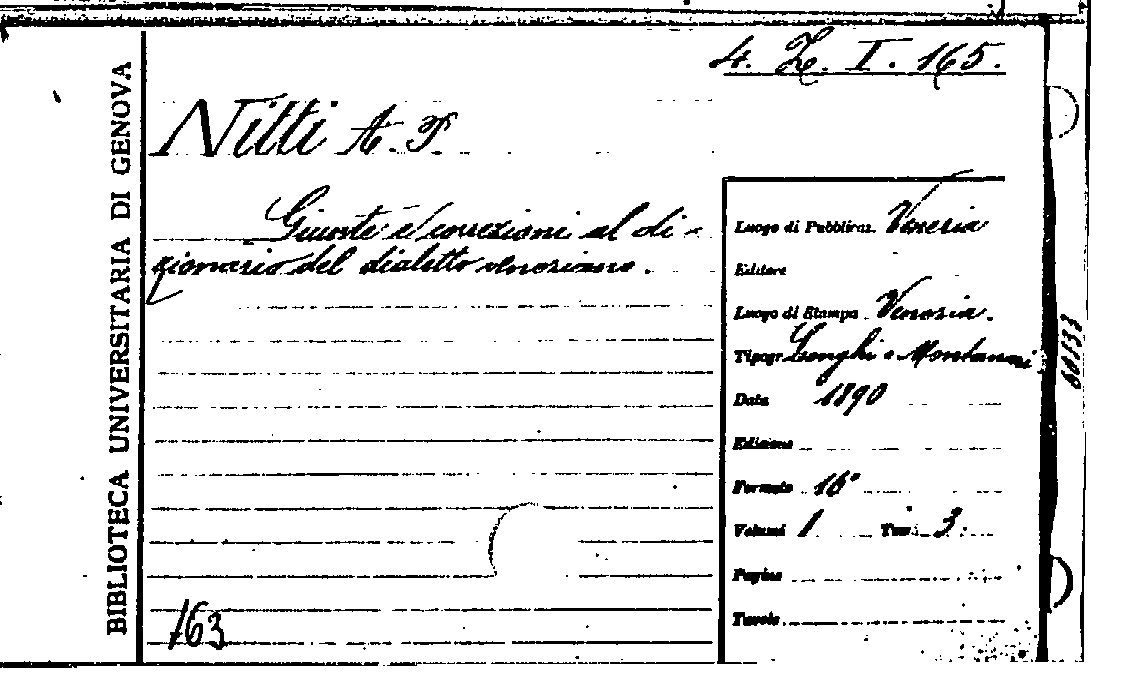 4. Z. I. 165.
BIBLIOTECA UNIVERSITARIA DI GENOVA
Nitti A. F.
Giunte e correzioni al di-
zionario del dialetto veneziano.
Luogo di Pubblicaz. Venezia
Editore
Luogo di Stampa Venezia.
Tipogr. Longhi e Montanari
Data 1890
Edizione
Formato 16°
Volumi 1 Tom. 3.
Pagine
Tavole
163